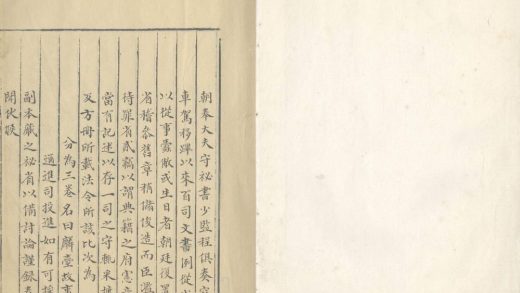 朝奉大夫守祕書少監程俱奏
車駕移蹕以來百司文書例從
以從事 散 日者朝廷復置
省稽參舊章稍備俊造而臣濫
待罪省貳竊以謂典籍之府憲章
當有記述以存一司之守輒采摭
及方冊所載法令所該比次為
分為三卷名曰麟臺故事
通進司投進如有可採
副本藏之祕省以備討論謹錄奏
聞伏候